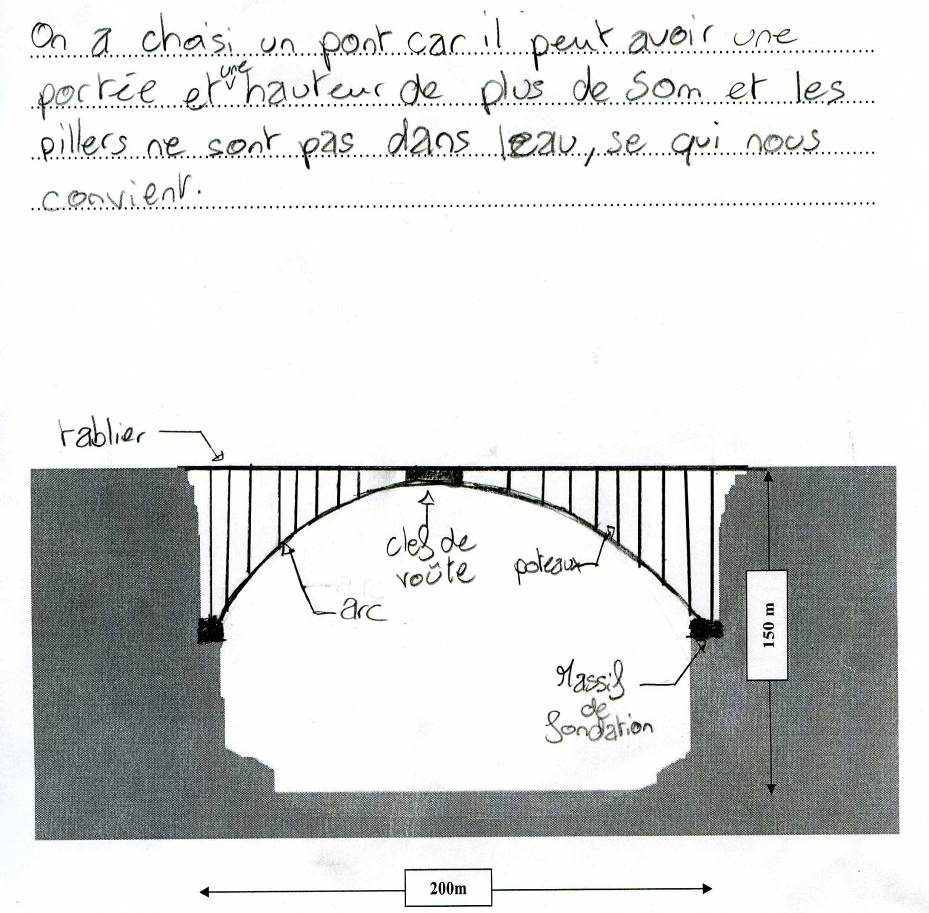 On a choisi un pont car il peut avoir une
portée et une hauteur de plus de 50m et les
pillers ne sont pas dans leau, se qui nous
convient.
tablier
clef de
voûte
poteaux
arc
150 m
Massif
de
fondation
200m